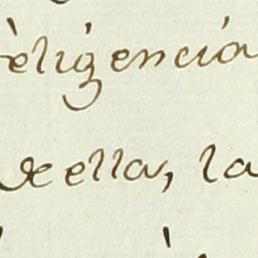 eligencia
de ella, la